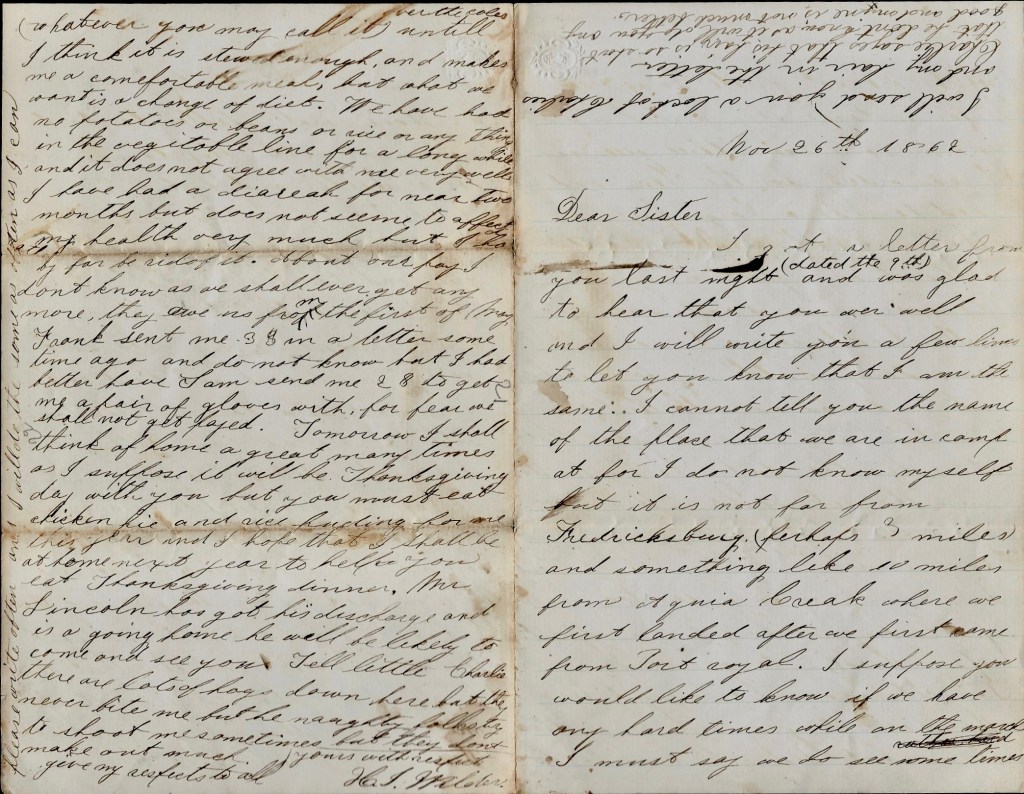 Nov 26th 1862
Dear Sister
I got a letter from
you last night (dated the 9th) and was glad
to hear that you wer well
and I will write you a few lines
to let you know that I am the
same. I cannot tell you the name
of the place that we are in camp
at for I do not know myself
but it is not far from
Fredricksburg. perhaps 3 miles
and something like 10 miles
from Aquia Creak where we
first landed after we first came
from Port royal. I suppose you
would like to know if we have
any hard times while on the march
I must say we do see some times
I will send you a lock of Charlies
and my hair in the letter
Charlie says that his hair is so short
that he dont know as it will do you any
good and mine is not much better.
over the coles
(whatever you may call it) untill
I think it is stewed enough, and makes
me a comefortable meal, but what we
want is a change of diet. We have had
no potatoes or beans or rice or any thing
in the vegitable line for a long while
and it does not agree with me very well
I have had a diareah for near two
months but does not seeme to affect
my health very much but
by far be rid of it. About our pay I
dont know as we shall ever get any
more, they owe us from the first of May
Frank sent me 3 $ in a letter some
time ago and do not know but I had
better have Sam send me 2 $ to get
me a pair of gloves with, for fear we
shall not get payed. Tomorrow I shall
think of home a great many times
as I suppose it will be Thanksgiving
day with you but you must eat
chicken pie and rice puding for me
this year and I hope that I shall be
at home next year to help you
eat Thanksgiving dinner. Mr
Lincoln has got his discharge and
is a going home he will be likely to
come and see you Tell little Charlie
there are lots of hogs down here but they
never bite me but the naughty
to shoot me sometimes but they dont
make out much. yours with respect
give my respects to all H. I.
please write often and I will do the same as often as I can